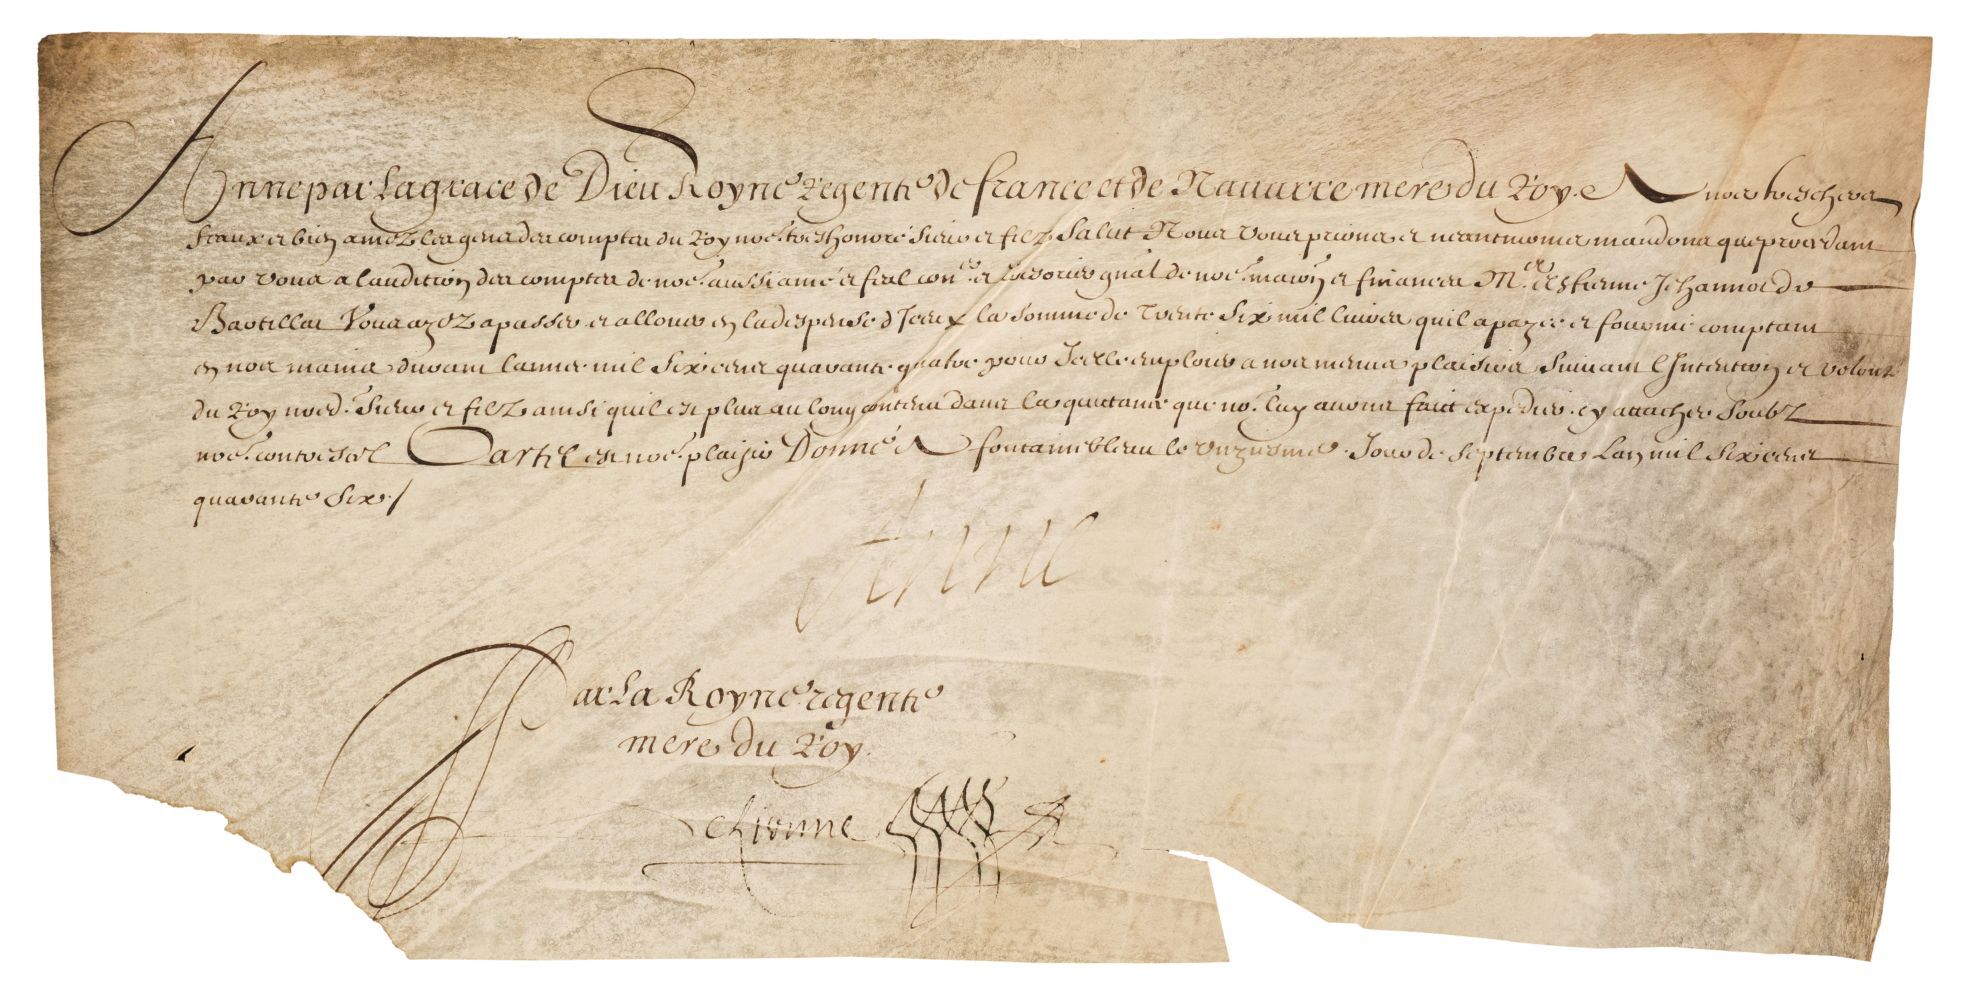 Anne par La grace de Dieu Royne regente de france et de Nauarre mere du Roy. A nos tres chers
feaux et bien amez les gens des comptes du Roy noe. tres honoré sieur et filz Salut Nous vous prions et neantmoins mandons que procedant
par vous a laudition des comptes de noe. aussi amé et feal coner. et tresorier gnal de noe. maison et finances Me. Estienne Jehannot de
Bartillat Vous ayez a passer et allouer en la despense d'Iceux la somme de Trente Six mil liures quil a payée et fourni comptant
en nos mains durant lannée mil Six cens quarante quatre pour Icelle employer a nos menus plaisirs Suiuant l'Intention et volonté
du Roy noed. Sieur et filz ainsi quil est plus au long contenu dans la quictance que no. luy auons fait expedier cy attachée soubz
noe. contrescel Car tel est noe. plaisir Donné A fontainebleau le unziesme Jour de Septembre Lan mil six cens
quarante six./
Anne
Par La Royne regente
mere du Roy.
De Lionne